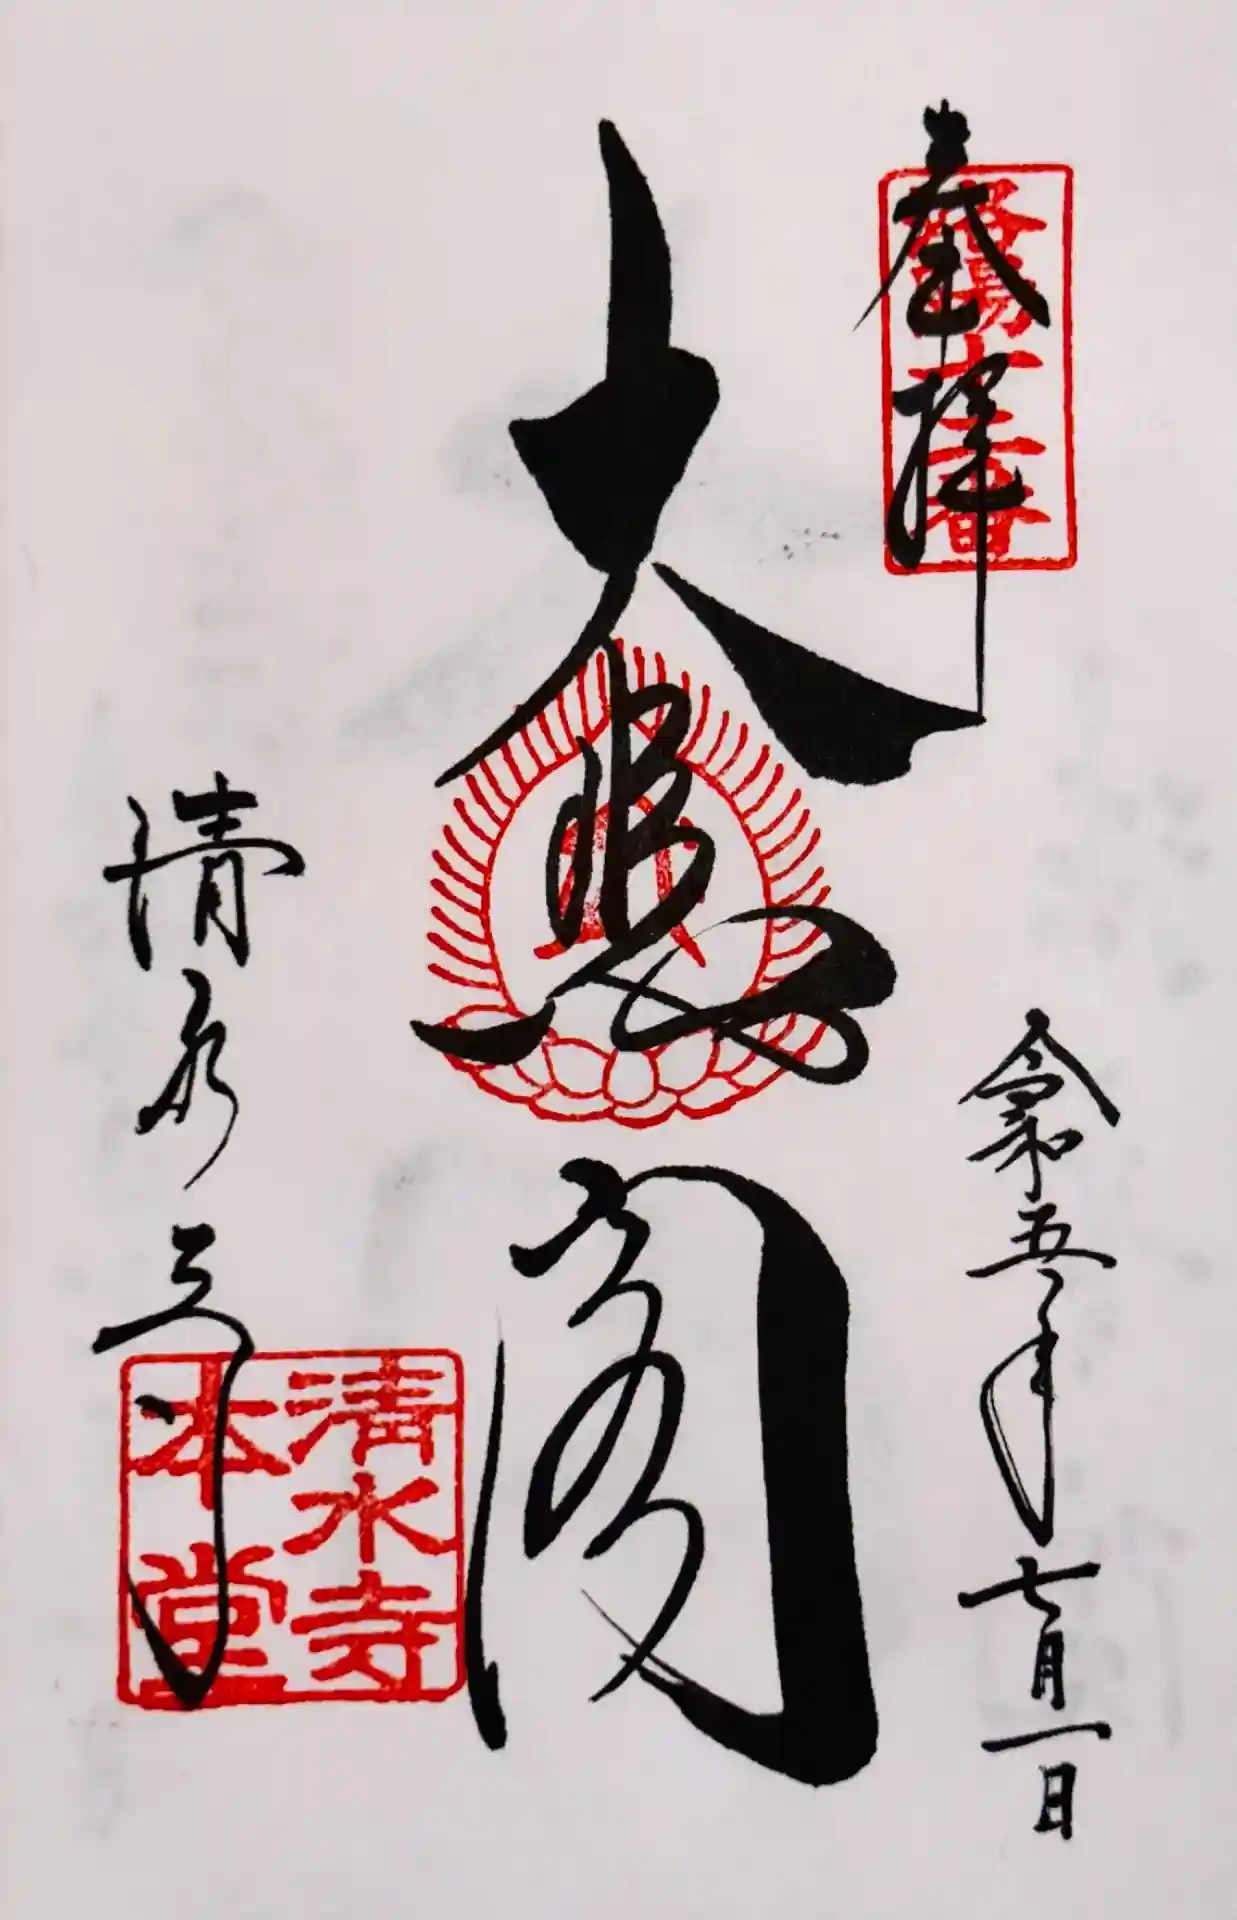 奉拝
洛陽十二番
令和五年七月一日
大悲閣
清水寺
清水寺
本堂